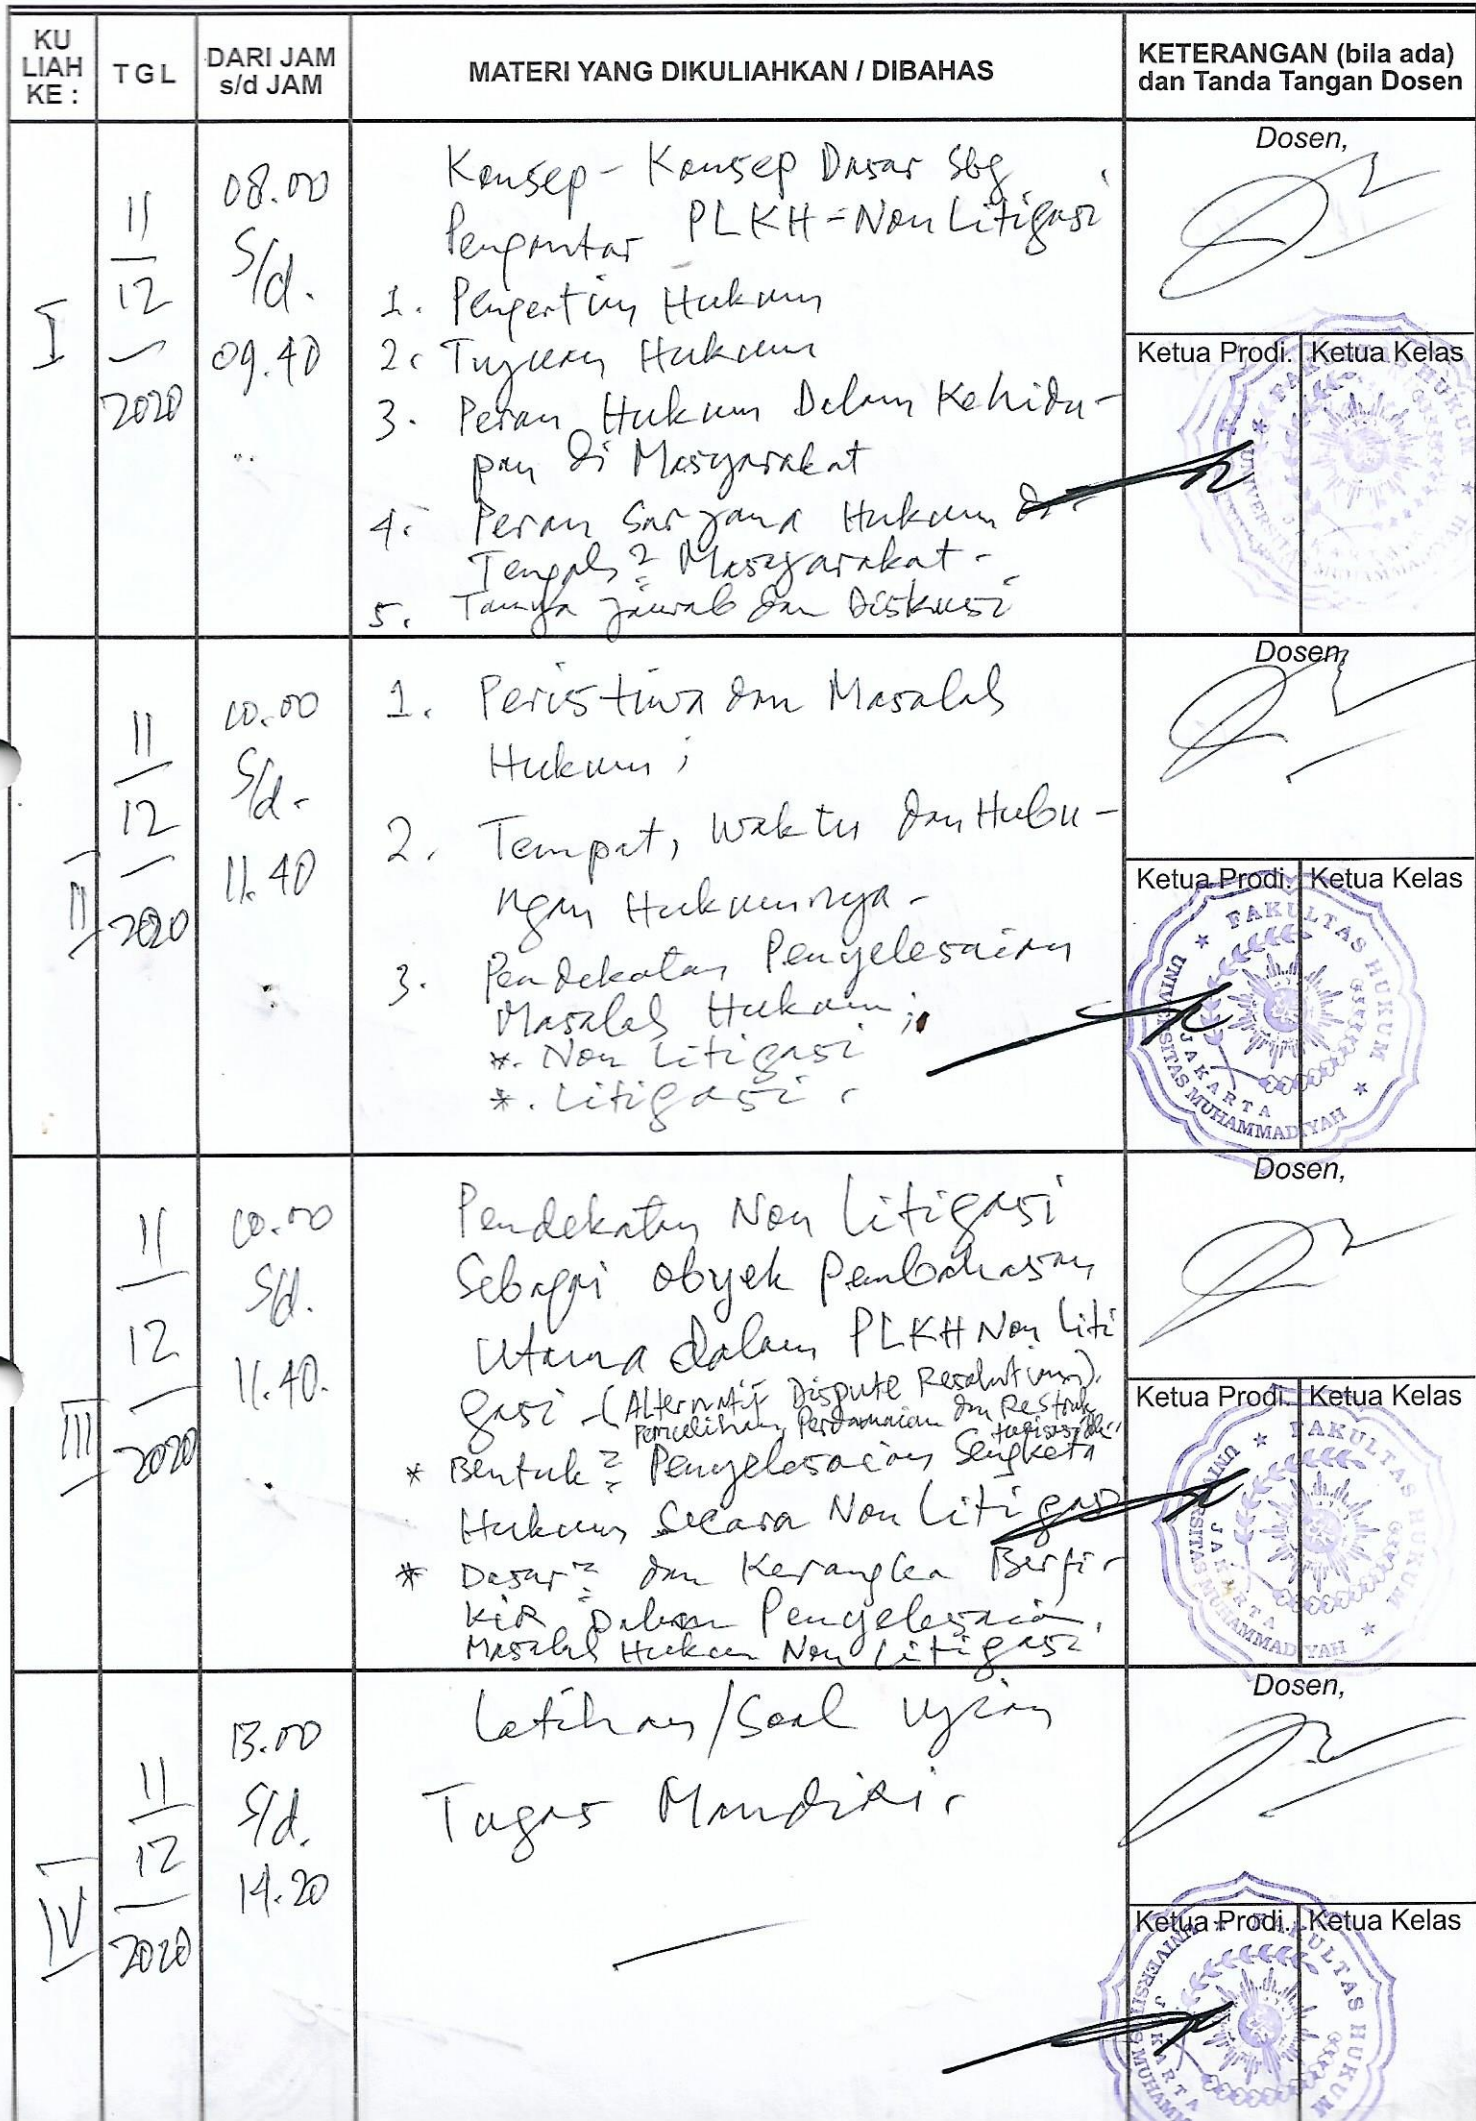 KU
LIAH
KE :
TGL
DARI JAM
s/d JAM
MATERI YANG DIKULIAHKAN / DIBAHAS
KETERANGAN (bila ada)
dan Tanda Tangan Dosen
I
11
12
2020
08.00
s/d.
09.40
Konsep - Konsep Dasar sbg
Pengantar PLKH - Non Litigasi
1. Pengertian Hukum
2. Tujuan Hukum
3. Peran Hukum Dalam Kehidu-
pan di Masyarakat
4. Peran Sarjana Hukum di
Tengah2 Masyarakat -
5. Tanya jawab dan Diskusi
Dosen,
Ketua Prodi.
Ketua Kelas
II
11
12
2020
10.00
s/d -
11.40
1. Peristiwa dan Masalah
Hukum ;
2. Tempat, Waktu dan Hubu -
ngan Hukumnya -
3. Pendekatan Penyelesaian
Masalah Hukum ;
*. Non Litigasi
*. Litigasi .
Dosen,
Ketua Prodi.
Ketua Kelas
FAKULTAS HUKUM
UNIVERSITAS MUHAMMADIYAH
JAKARTA
III
11
12
2020
10.00
s/d.
11.40.
Pendekatan Non Litigasi
Sebagai obyek Pembahasan
Utama dalam PLKH Non Liti
gasi - (Alternatif Dispute Resolution).
Pemulihan Perdamaian dan
* Bentuk2 Penyelesaian Sengketa
Hukum Secara Non Litigasi
* Dasar2 dan Kerangka Berfi -
kir Dalam Penyelesaian
Masalah Hukum Non Litigasi
Dosen,
Ketua Prodi.
Ketua Kelas
FAKULTAS HUKUM
UNIVERSITAS MUHAMMADIYAH
JAKARTA
IV
11
12
2020
13.00
s/d.
14.20
Latihan/Soal Ujian
Tugas Mandiri.
Dosen,
Ketua Prodi.
Ketua Kelas